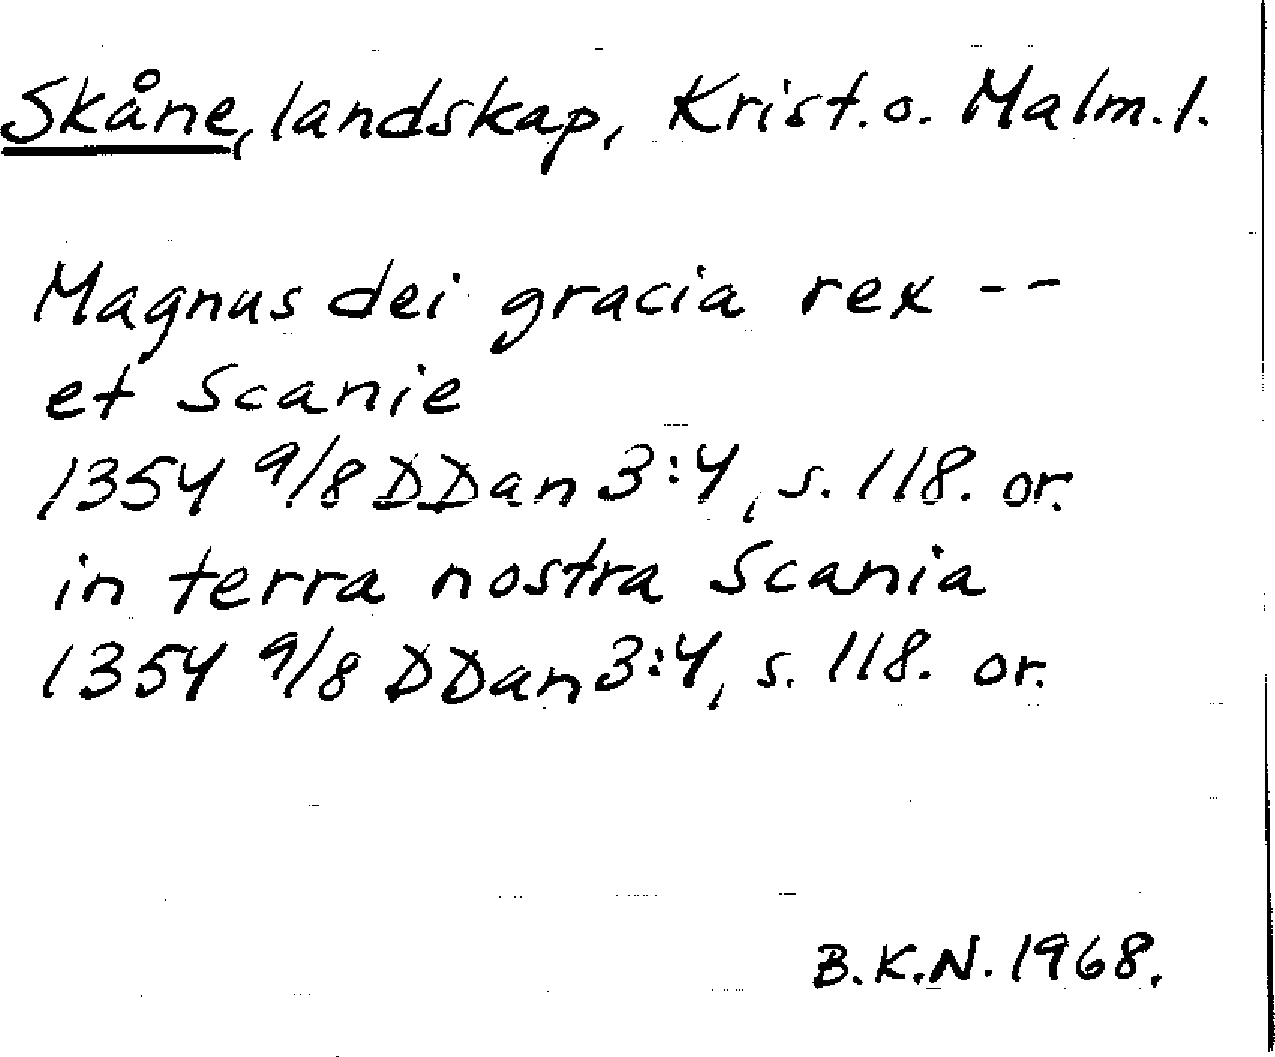 Skåne, landskap, Krist. o. Malm. l.
Magnus dei gracia rex --
et Scanie
1354 9/8 DDan 3:4, s. 118. or.
in terra nostra Scania
1354 9/8 DDan 3:4, s. 118. or.
B.K.N. 1968.